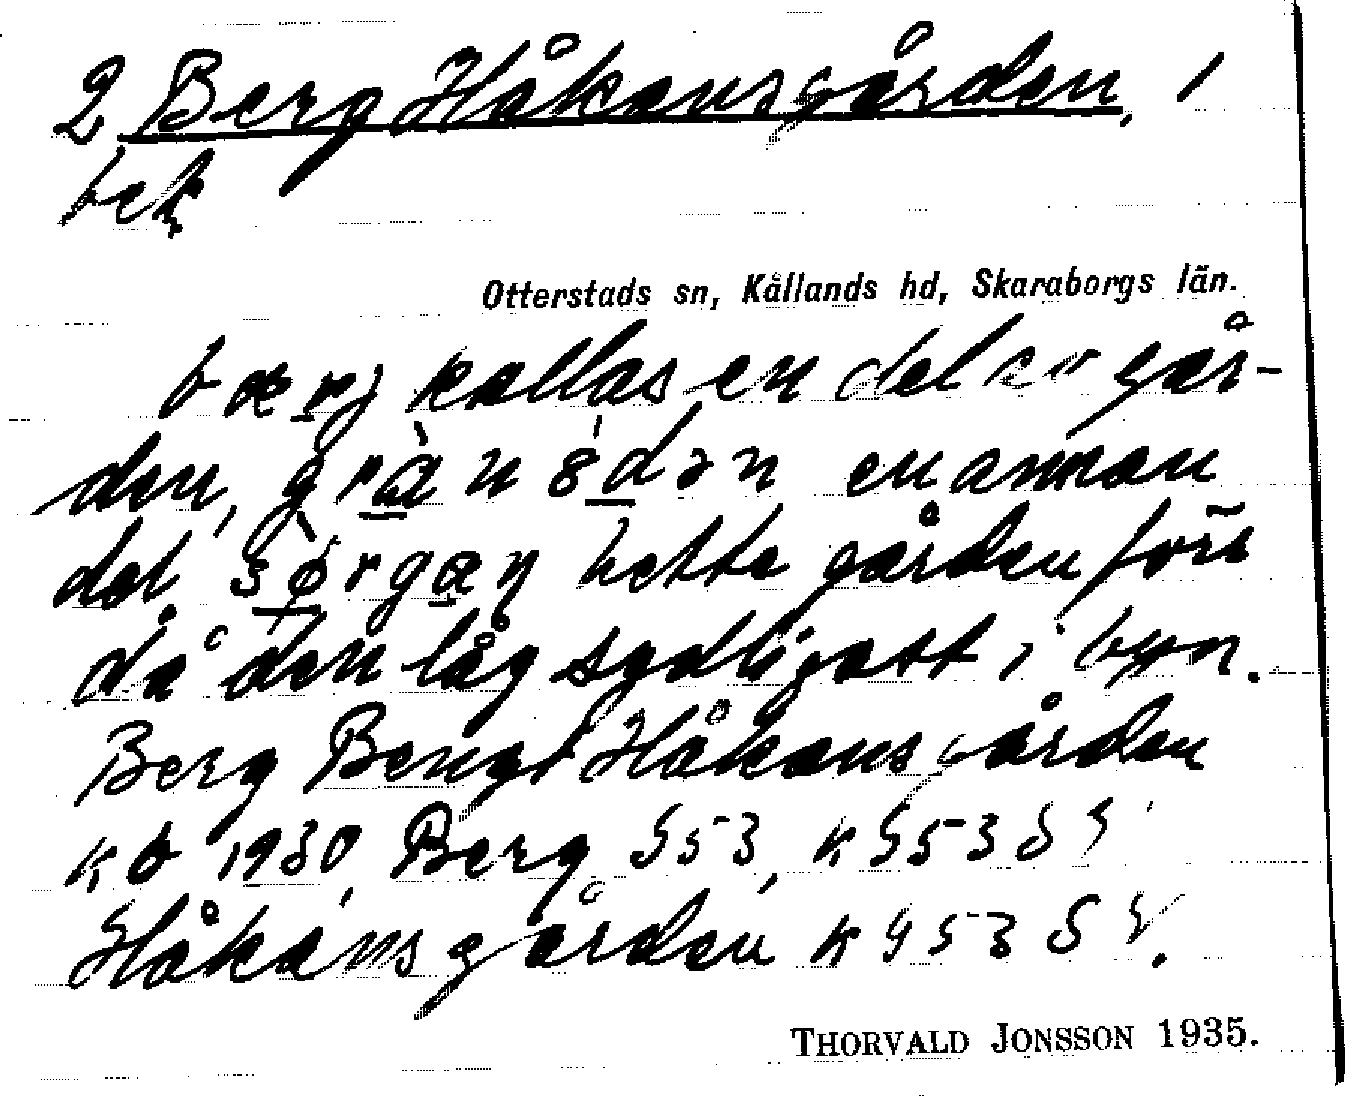 2 Berg Håkansgården, 1
bek
Otterstads sn, Kållands hd, Skaraborgs län.
bærj kallas en del av går-
den, gràn8dən en annan
del, sørgaŋ hette gården förr
då den låg sydligast i byn.
Berg Bengt Håkansgården
kb 1930, Berg S53, K S53
Håkansgården K
THORVALD JONSSON 1935.